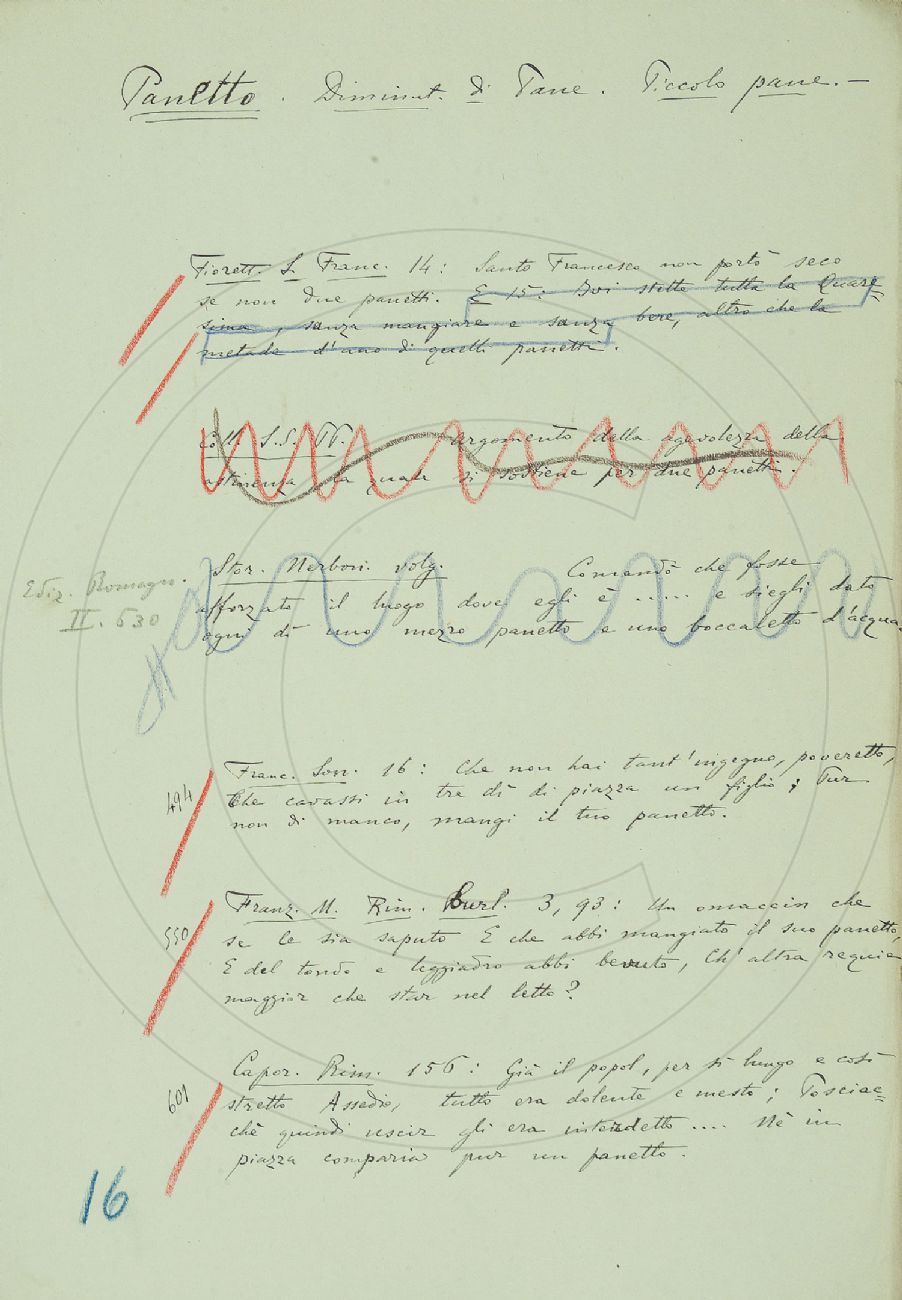 Panetto. Diminut. di Pane. Piccolo pane. —
Fiorett. S. Franc. 14: Santo Francesco non portò seco
se non due panetti. E 15: Ivi stette tutta la Quare=
sima, sanza mangiare e sanza bere, altro che la
metade d'uno di quelli panetti.
Coll. S.S. PP. argomento della agevolezza della
astinenza la quale si sostiene per due panetti.
Stor. Nerbon. volg. Comandò che fosse
Ediz. Romagn.
II. 530
afforzato il luogo dove egli è ..... e siegli dato
ogni dì uno mezzo panetto e uno boccaletto d'acqua.
494
Franc. Son. 16: Che non hai tant'ingegno, poveretto,
Che cavassi in tre dì di piazza un figlio; Pur
non di manco, mangi il tuo panetto.
550
Franz. M. Rim. Burl. 3, 93: Un omaccin che
se le sia saputo E che abbi mangiato il suo panetto,
E del tondo e leggiadro abbi bevuto, Ch'altra requie
maggior che star nel letto?
601
Capor. Rim. 156: Già il popol, per sì lungo e così
stretto Assedio, tutto era dolente e mesto; Posciac=
chè quindi uscir gli era interdetto .... Nè in
piazza comparia pur un panetto.
16